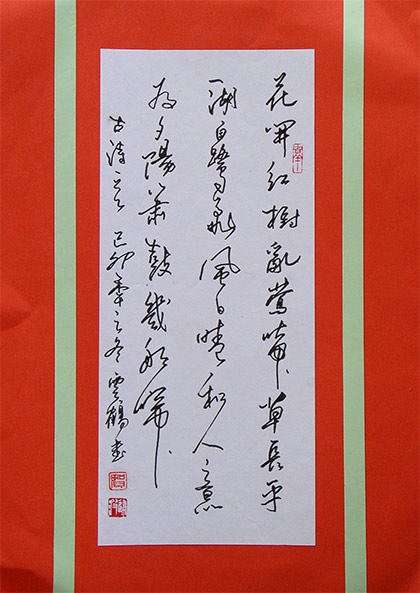 花開紅樹亂鶯啼草長平
湖白鷺飛風日晴和人意
好夕陽簫鼓幾船歸
古詩一首己卯年之冬雲鶴書